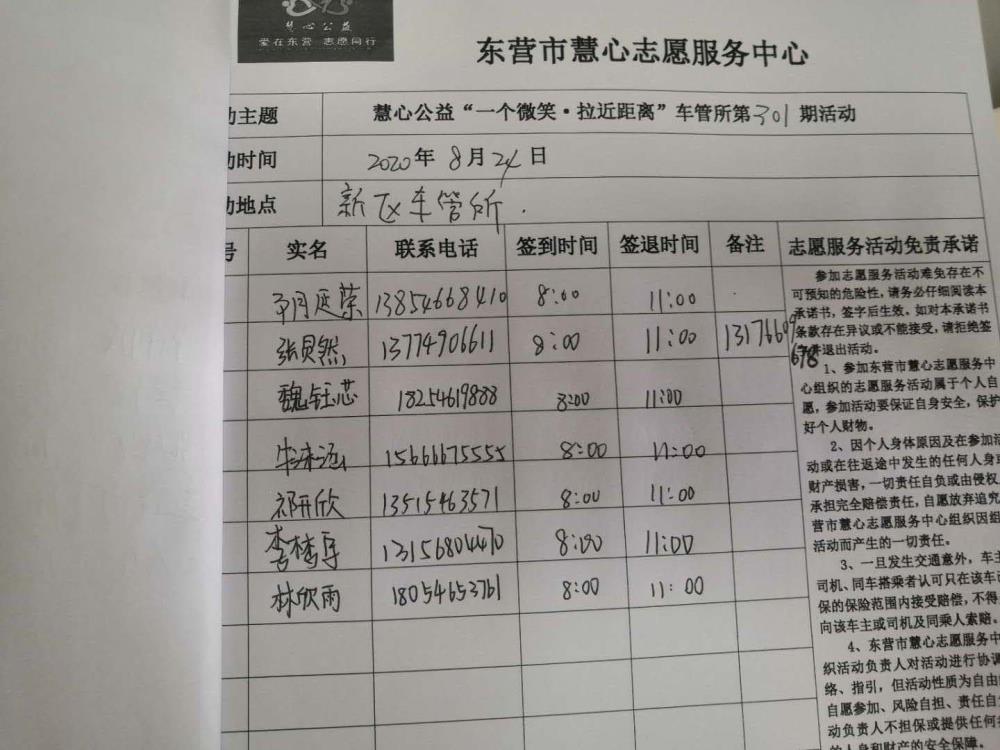 慧心公益
爱在东营 志愿同行
东营市慧心志愿服务中心
动主题 慧心公益“一个微笑·拉近距离”车管所第301期活动
动时间 2020年8月24日
动地点 新区车管所.
号 实名 联系电话 签到时间 签退时间 备注 志愿服务活动免责承诺
荣 13854668410 8:00 11:00
张贝然 13774906611 8:00 11:00 13176609678
魏钰芯 18254619888 8:00 11:00
15666675555 8:00 11:00
祁开欣 13515463571 8:00 11:00
李 13156804470 8:00 11:00
林欣雨 18054653761 8:00 11:00
参加志愿服务活动难免存在不
可预知的危险性,请务必仔细阅读本
承诺书,签字后生效。如对本承诺书
条款存在异议或不能接受,请拒绝签
退出活动。
1、参加东营市慧心志愿服务中
心组织的志愿服务活动属于个人自
愿,参加活动要保证自身安全,保护
好个人财物。
2、因个人身体原因及在参加活
动或在往返途中发生的任何人身或
财产损害,一切责任自负或由侵权
承担完全赔偿责任,自愿放弃追究
营市慧心志愿服务中心组织因组
活动而产生的一切责任。
3、一旦发生交通意外,车主
司机、同车搭乘者认可只在该车
保的保险范围内接受赔偿,不得
向该车主或司机及同乘人索赔。
4、东营市慧心志愿服务中
织活动负责人对活动进行协调
络、指引,但活动性质为自由
自愿参加、风险自担、责任自
动负责人不担保或提供任何
的人身和财产的安全保障。